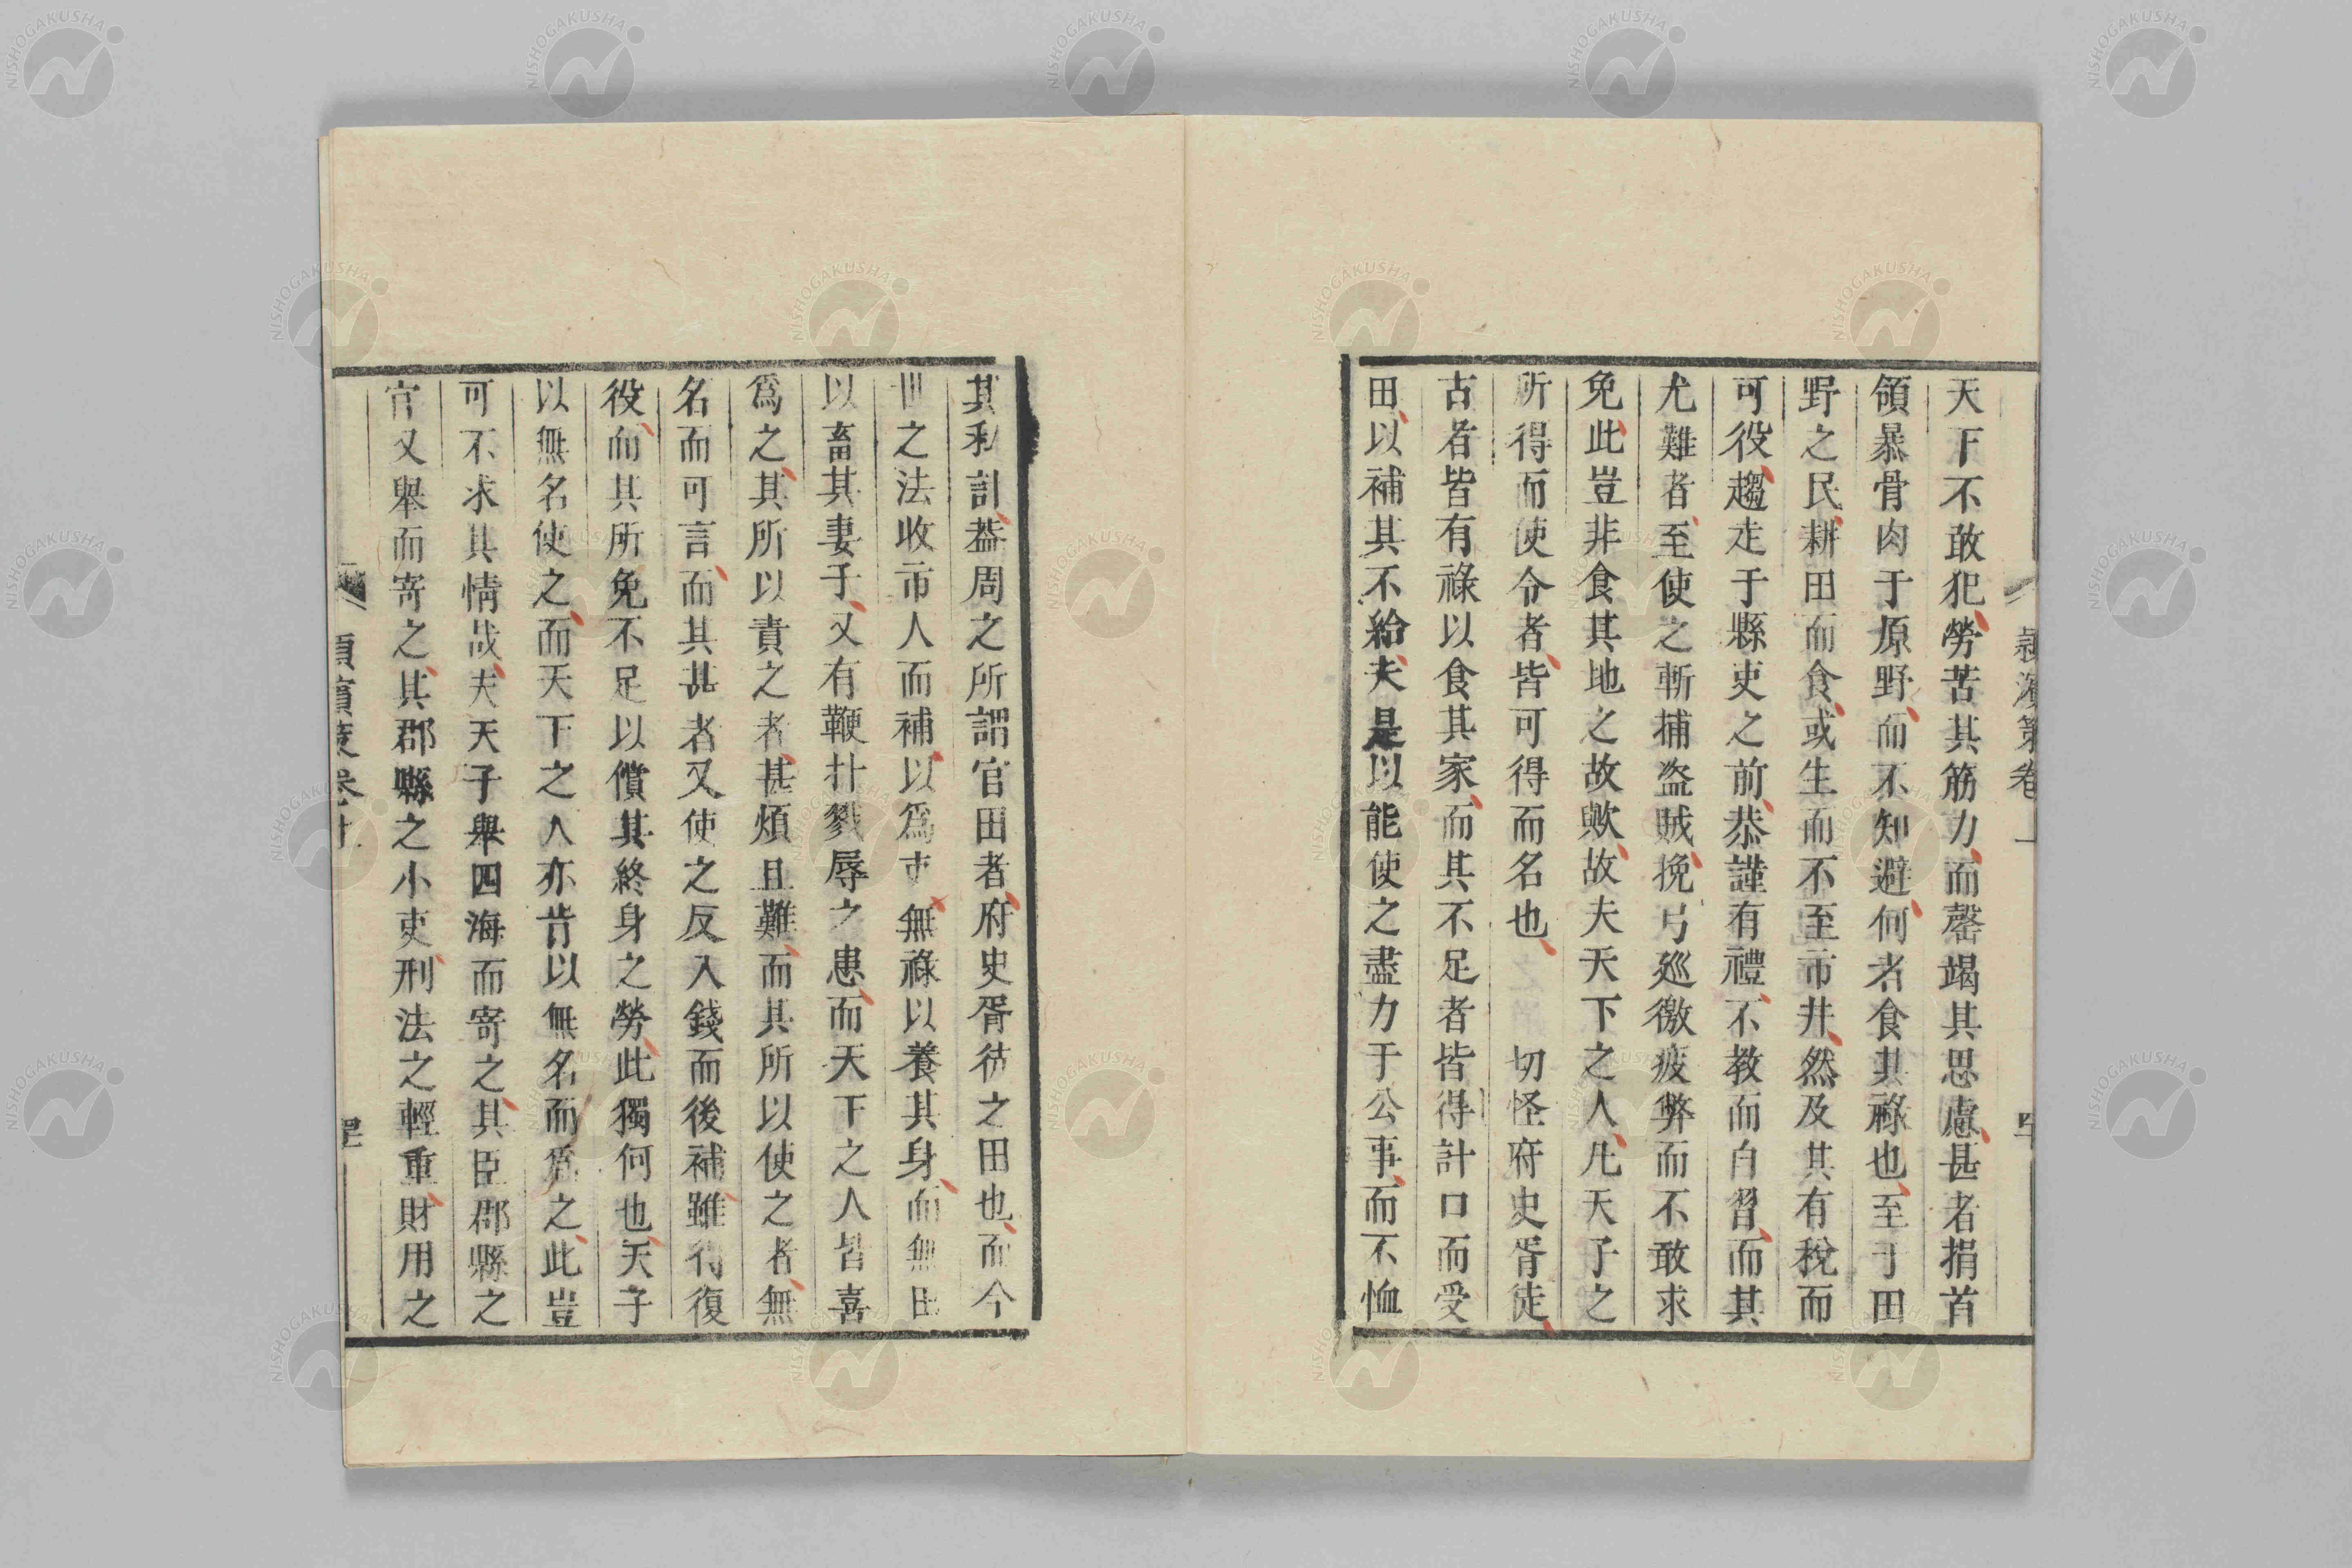 天下不敢犯勞苦其筋力而罄竭其思慮甚者捐首
領暴骨肉于原野而不知避何者食其祿也至于田
野之民耕田而食或生而不至市井然及其有稅而
可役趨走于縣吏之前恭謹有禮不教而自習而其
尤難者至使之斬捕盜賊挽弓廵徼疲弊而不敢求
免此豈非食其地之故歟故夫天下之人凡天子之
所得而使令者皆可得而名也 切怪府史胥徒
古者皆有祿以食其家而其不足者皆得計口而受
田以補其不給夫是以能使之盡力于公事而不恤
其私計葢周之所謂官田者府史胥徒之田也而今
世之法收市人而補以爲吏無祿以養其身而無田
以畜其妻子又有鞭扑戮辱之患而天下之人皆喜
爲之其所以責之者甚煩且難而其所以使之者無
名而可言而其甚者又使之反入錢而後補雖得復
役而其所免不足以償其終身之勞此獨何也天子
以無名使之而天下之人亦肯以無名而爲之此豈
可不求其情哉夫天子舉四海而寄之其臣郡縣之
官又舉而寄之其郡縣之小吏刑法之輕重財用之
NISHOGAKUSHA